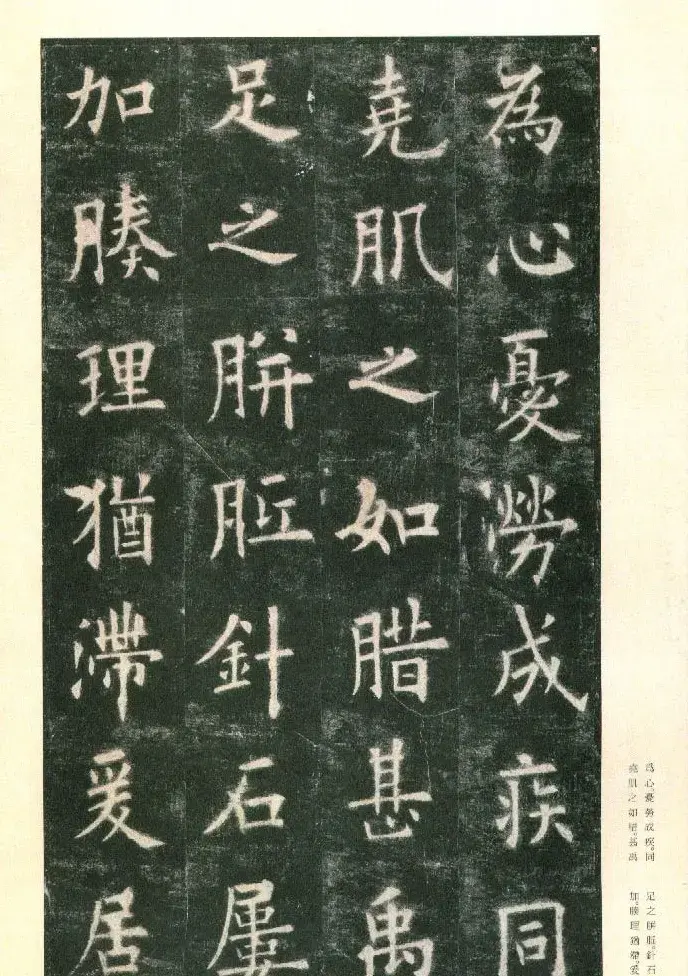 為心憂勞成疾同
堯肌之如腊甚禹
足之胼胝針石屢
加腠理猶滯爰居
爲心憂勞成疾。同
堯肌之如腊。甚禹
足之胼胝。針石
加。腠理猶滯。爰